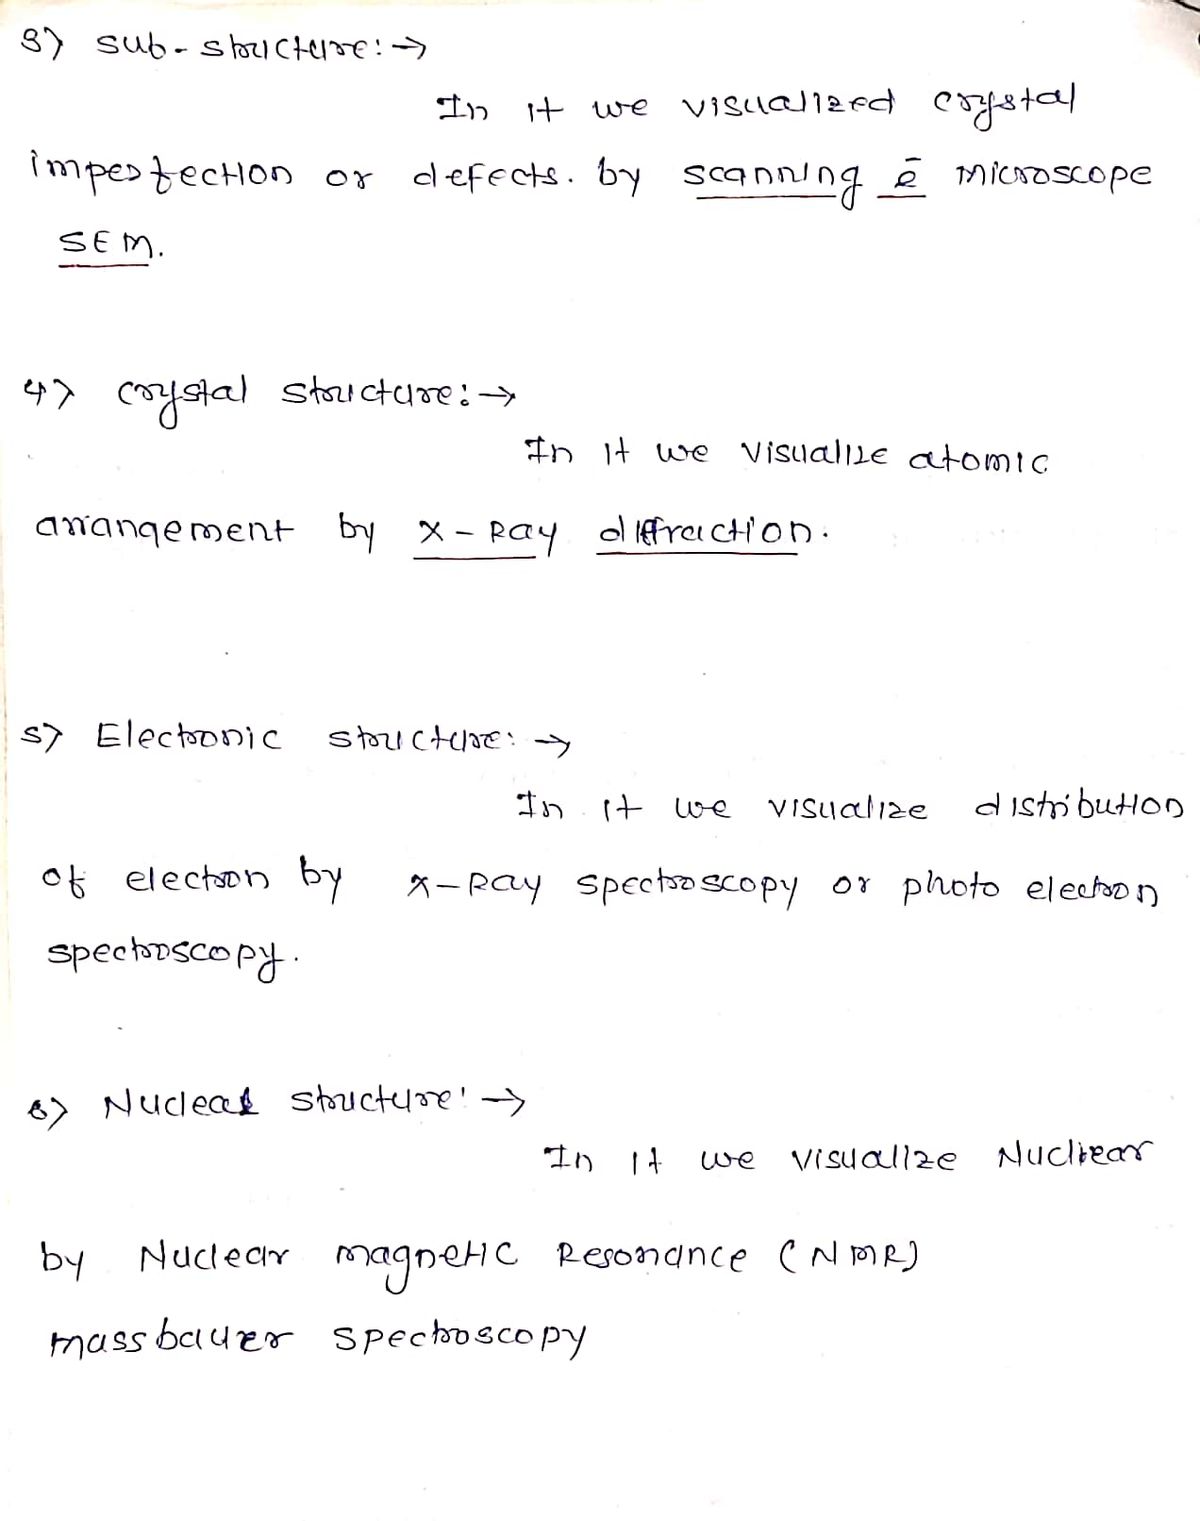 3) sub-structure:→
In it we visualized crystal
imperfection or defects. by scanning ē microscope
SEM.
4) crystal structure:→
In it we visualize atomic
arrangement by X-Ray diffraction.
5) Electronic structure:→
In it we visualize distribution
of electron by X-Ray spectroscopy or photo electron
spectroscopy.
6) Nuclear structure:→
In it we visualize Nuclear
by Nuclear magnetic Resonance (NMR)
massbauer spectroscopy